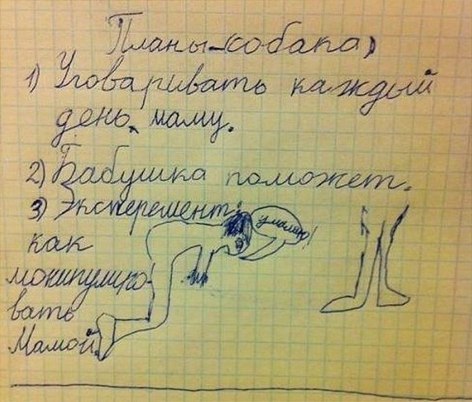 Планы-собака,
1) Уговаривать каждый
день маму.
2) Бабушка поможет.
3) Эксперемент:
как
монипулиро-
вать
Мамой.
умоляю!